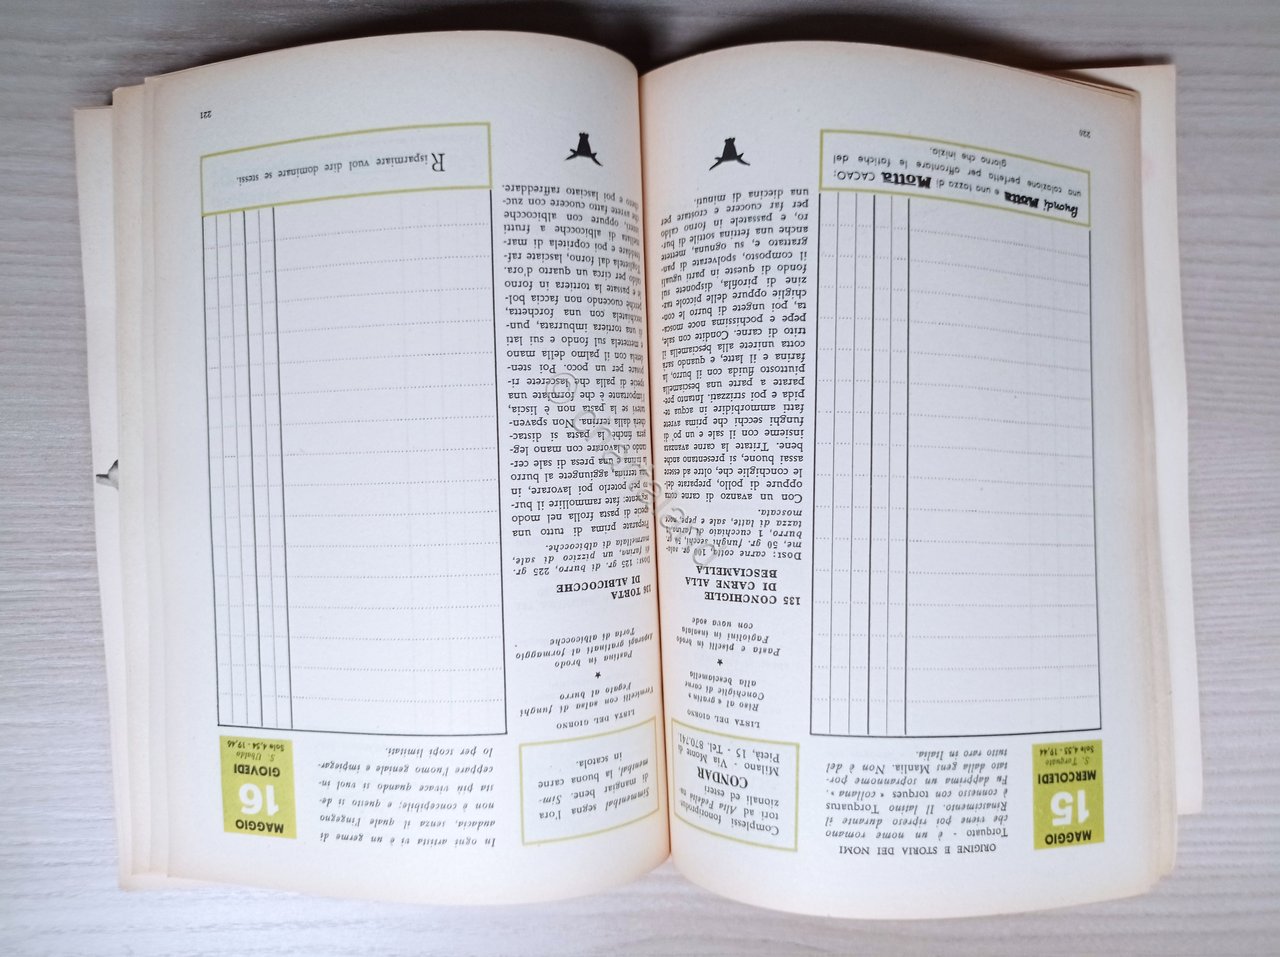 MAGGIO
15
MERCOLEDI
S. Torquato
Sole 4,55 - 19,44
ORIGINE E STORIA DEI NOMI
Torquato - è un nome romano
che viene poi ripreso durante il
Rinascimento. Il latino Torquatus
è connesso con torques « collana ».
Fu dapprima un soprannome por-
tato dalla gens Manlia. Non è del
tutto raro in Italia.
Complessi fonoriprodut-
tori ad Alta Fedeltà na-
zionali ed esteri
CONDAR
Milano - Via Monte di
Pietà, 15 - Tel. 870.741
LISTA DEL GIORNO
Riso al « gratin »
Conchiglie di carne
alla besciamella
★
Pasta e piselli in brodo
Fagiolini in insalata
con uova sode
135 CONCHIGLIE
DI CARNE ALLA
BESCIAMELLA
Dosi: carne cotta, 100 gr. sala-
me, 50 gr. funghi secchi, 50 gr.
burro, 1 cucchiaio di farina, ½
tazza di latte, sale e pepe, noce
moscata.
Con un avanzo di carne cotta
oppure di pollo, preparate del-
le conchiglie che, oltre ad essere
assai buone, si presentano anche
bene. Tritate la carne avanzata
insieme con il sale e un po' di
funghi secchi che prima avrete
fatti ammorbidire in acqua te-
pida e poi strizzati. Intanto pre-
parate a parte una besciamella
piuttosto fluida con il burro, la
farina e il latte, e quando sarà
cotta unirete alla besciamella il
trito di carne. Condite con sale,
pepe e pochissima noce mosca-
ta, poi ungete di burro le con-
chiglie oppure delle piccole taz-
zine di pirofila, disponete sul
fondo di queste in parti uguali
il composto, spolverate di pan-
grattato e, su ognuna, mettete
anche una fettina sottile di bur-
ro, e passatele in forno caldo
per far cuocere e crostare per
una diecina di minuti.
Buondì Motta e una tazza di Motta CACAO:
una colazione perfetta per affrontare le fatiche del
giorno che inizia.
220
In ogni artista vi è un germe di
audacia, senza il quale l'ingegno
non è concepibile; e questo si de-
sta più vivace quando si vuol in-
ceppare l'uomo geniale e impiegar-
lo per scopi limitati.
MAGGIO
16
GIOVEDI
S. Ubaldo
Sole 4,54 - 19,46
Simmenthal segna l'ora
di mangiar bene. Sim-
menthal, la buona carne
in scatola.
LISTA DEL GIORNO
Vermicelli con salsa di funghi
Fegato al burro
★
Pastina in brodo
Asparagi gratinati al formaggio
Torta di albicocche
136 TORTA
DI ALBICOCCHE
Dosi: 125 gr. di burro, 225 gr.
di farina, un pizzico di sale,
marmellata di albicocche.
Preparate prima di tutto una
specie di pasta frolla nel modo
seguente: fate rammollire il bur-
ro per poterlo poi lavorare, in
una terrina, aggiungete al burro
la farina e una presa di sale cer-
cando di lavorare con mano leg-
gera finchè la pasta si distac-
cherà dalla terrina. Non spaven-
tatevi se la pasta non è liscia,
l'importante è che formiate una
specie di palla che lascerete ri-
posare per un poco. Poi sten-
detela con il palmo della mano
e mettetela sul fondo e sui lati
di una tortiera imburrata, pun-
zecchiatela con una forchetta,
perchè cuocendo non faccia bol-
le e passate la tortiera in forno
caldo per circa un quarto d'ora.
Toglietela dal forno, lasciate raf-
freddare e poi copritela di mar-
mellata di albicocche a frutti
interi, oppure con albicocche
che avrete fatto cuocere con zuc-
chero e poi lasciato raffreddare.
Risparmiare vuol dire dominare se stessi.
221